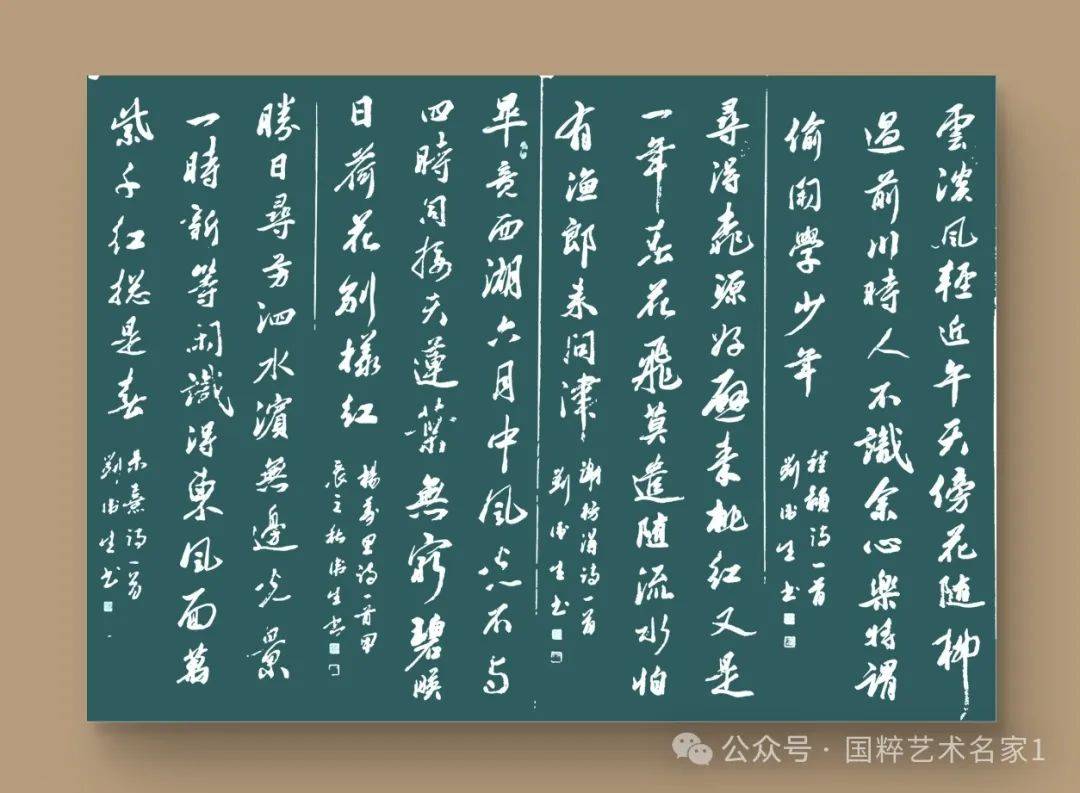 雲淡風輕近午天傍花随柳
過前川時人不識余心樂將謂
偷閑學少年
程顥詩一首
劉德生书
尋得桃源好避秦桃紅又是
一年春花飛莫遣随流水怕
有漁郎来問津
謝枋得詩一首
劉德生书
畢竟西湖六月中風光不与
四時同接天蓮葉無窮碧映
日荷花別樣紅
楊萬里詩一首甲
辰之秋德生书
勝日尋芳泗水濱無邊光景
一時新等閑識得東風面萬
紫千紅總是春
朱熹詩一首
劉德生书
公众号 · 国粹艺术名家1